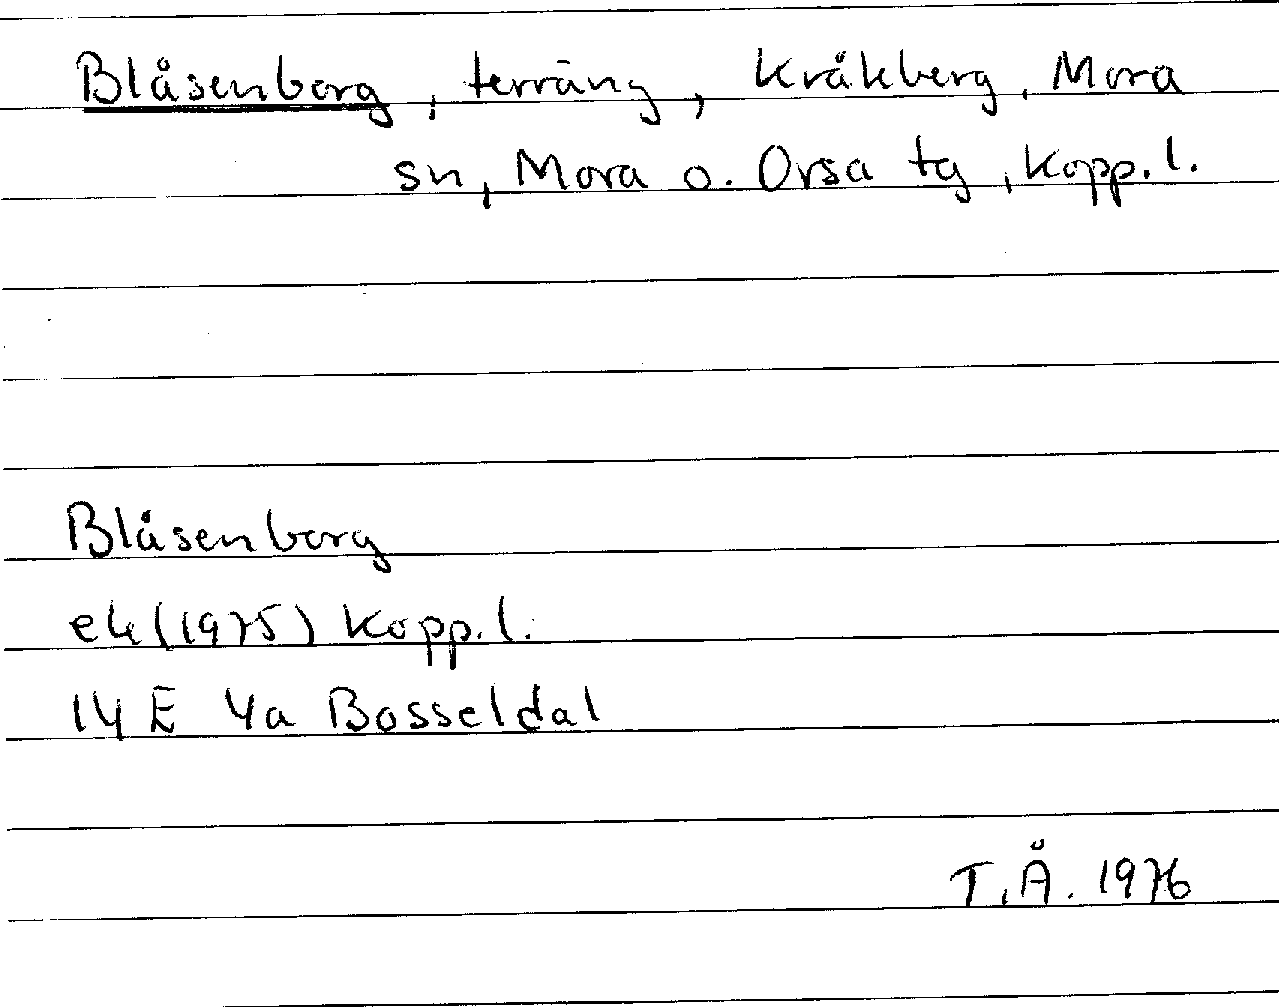 Blåsenborg, terräng, Kråkberg, Mora
sn, Mora o. Orsa tg, Kopp. l.
Blåsenborg
ek (1975) Kopp. l.
14 E 4a Bosseldal
T. Å. 1976